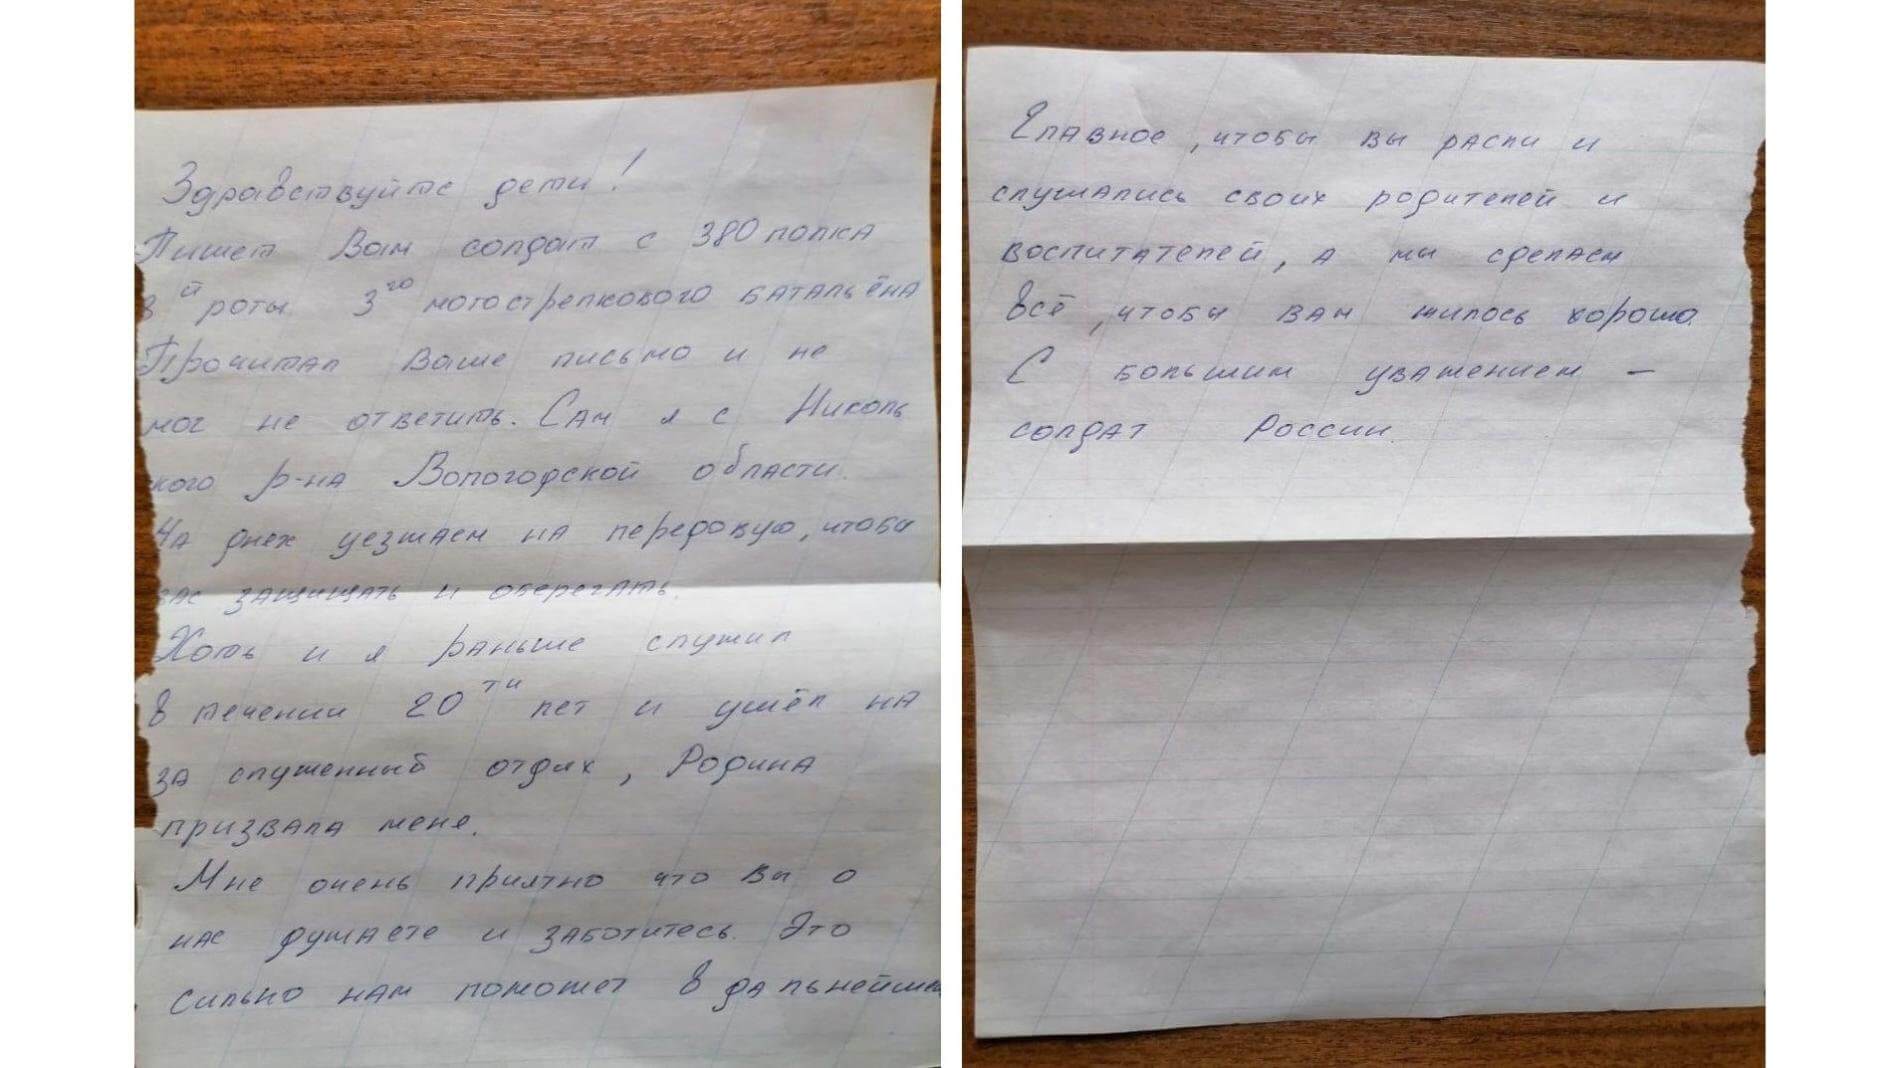 Здравствуйте дети!
Пишет Вам солдат с 380 полка
8й роты 3го мотострелкового батальёна
Прочитал Ваше письмо и не
мог не ответить. Сам я с Николь
кого р-на Вологодской области.
На днех уезжаем на передовую, чтобы
вас защищать и оберегать.
Хоть и я раньше служил
в течении 20ти лет и ушёл на
за служенный отдых, Родина
призвала меня.
Мне очень приятно что вы о
нас думаете и заботитесь. Это
сильно нам поможет в дальнейшем
Главное, чтобы вы расли и
слушались своих родителей и
воспитателей, а мы сделаем
всё, чтобы вам жилось хорошо.
С большим уважением –
солдат России.